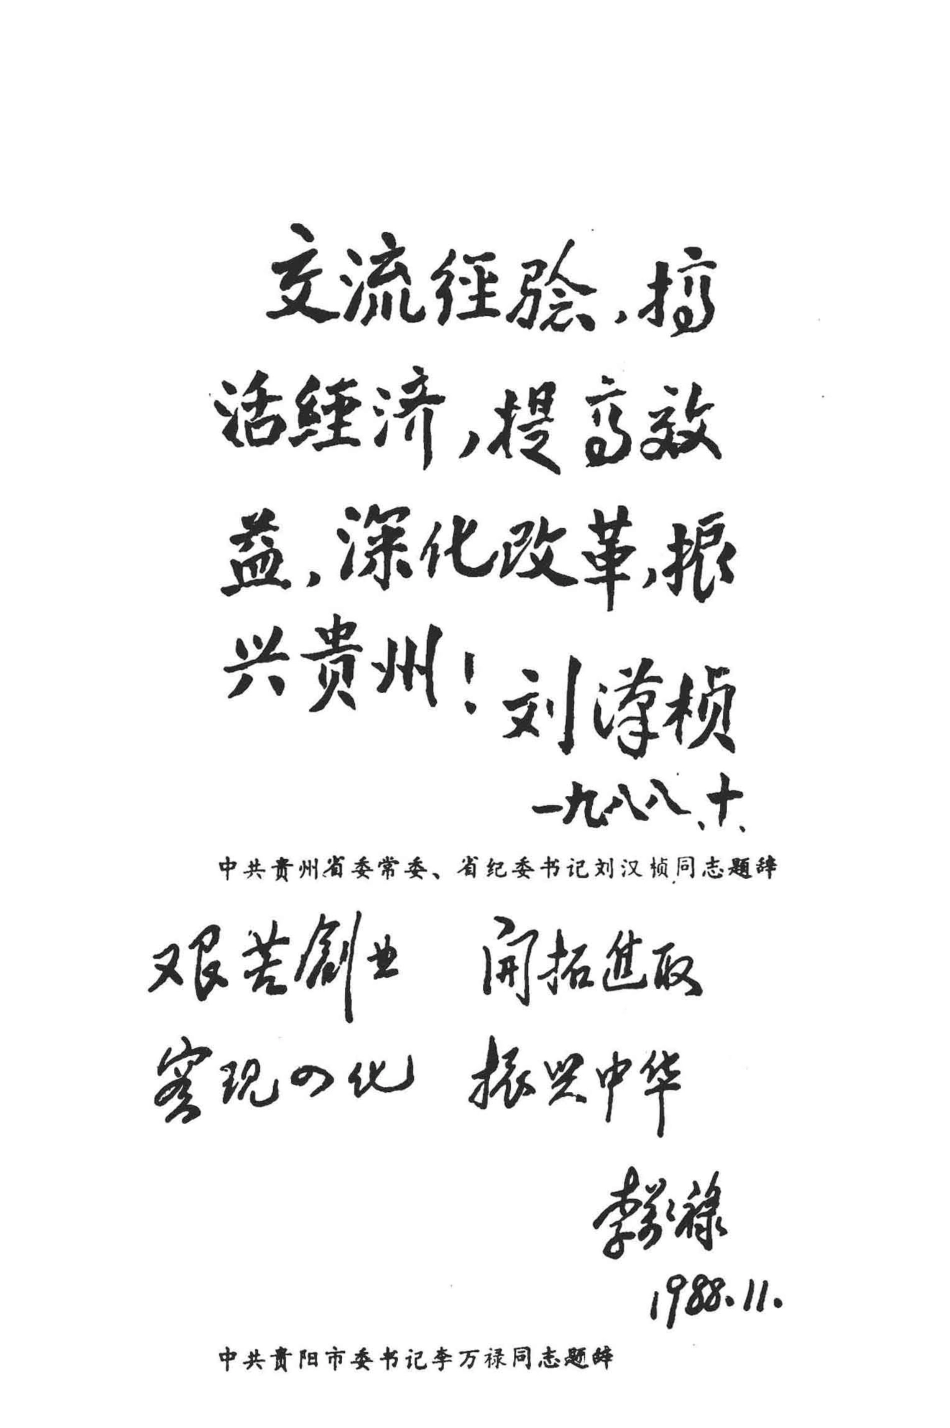 交流经验，搞
活经济，提高效
益，深化改革，振
兴贵州！
刘汉桢
一九八八、十、
中共贵州省委常委、省纪委书记刘汉桢同志题辞
艰苦創业 開拓進取
实现四化 振兴中华
李万禄
1988.11.
中共贵阳市委书记李万禄同志题辞